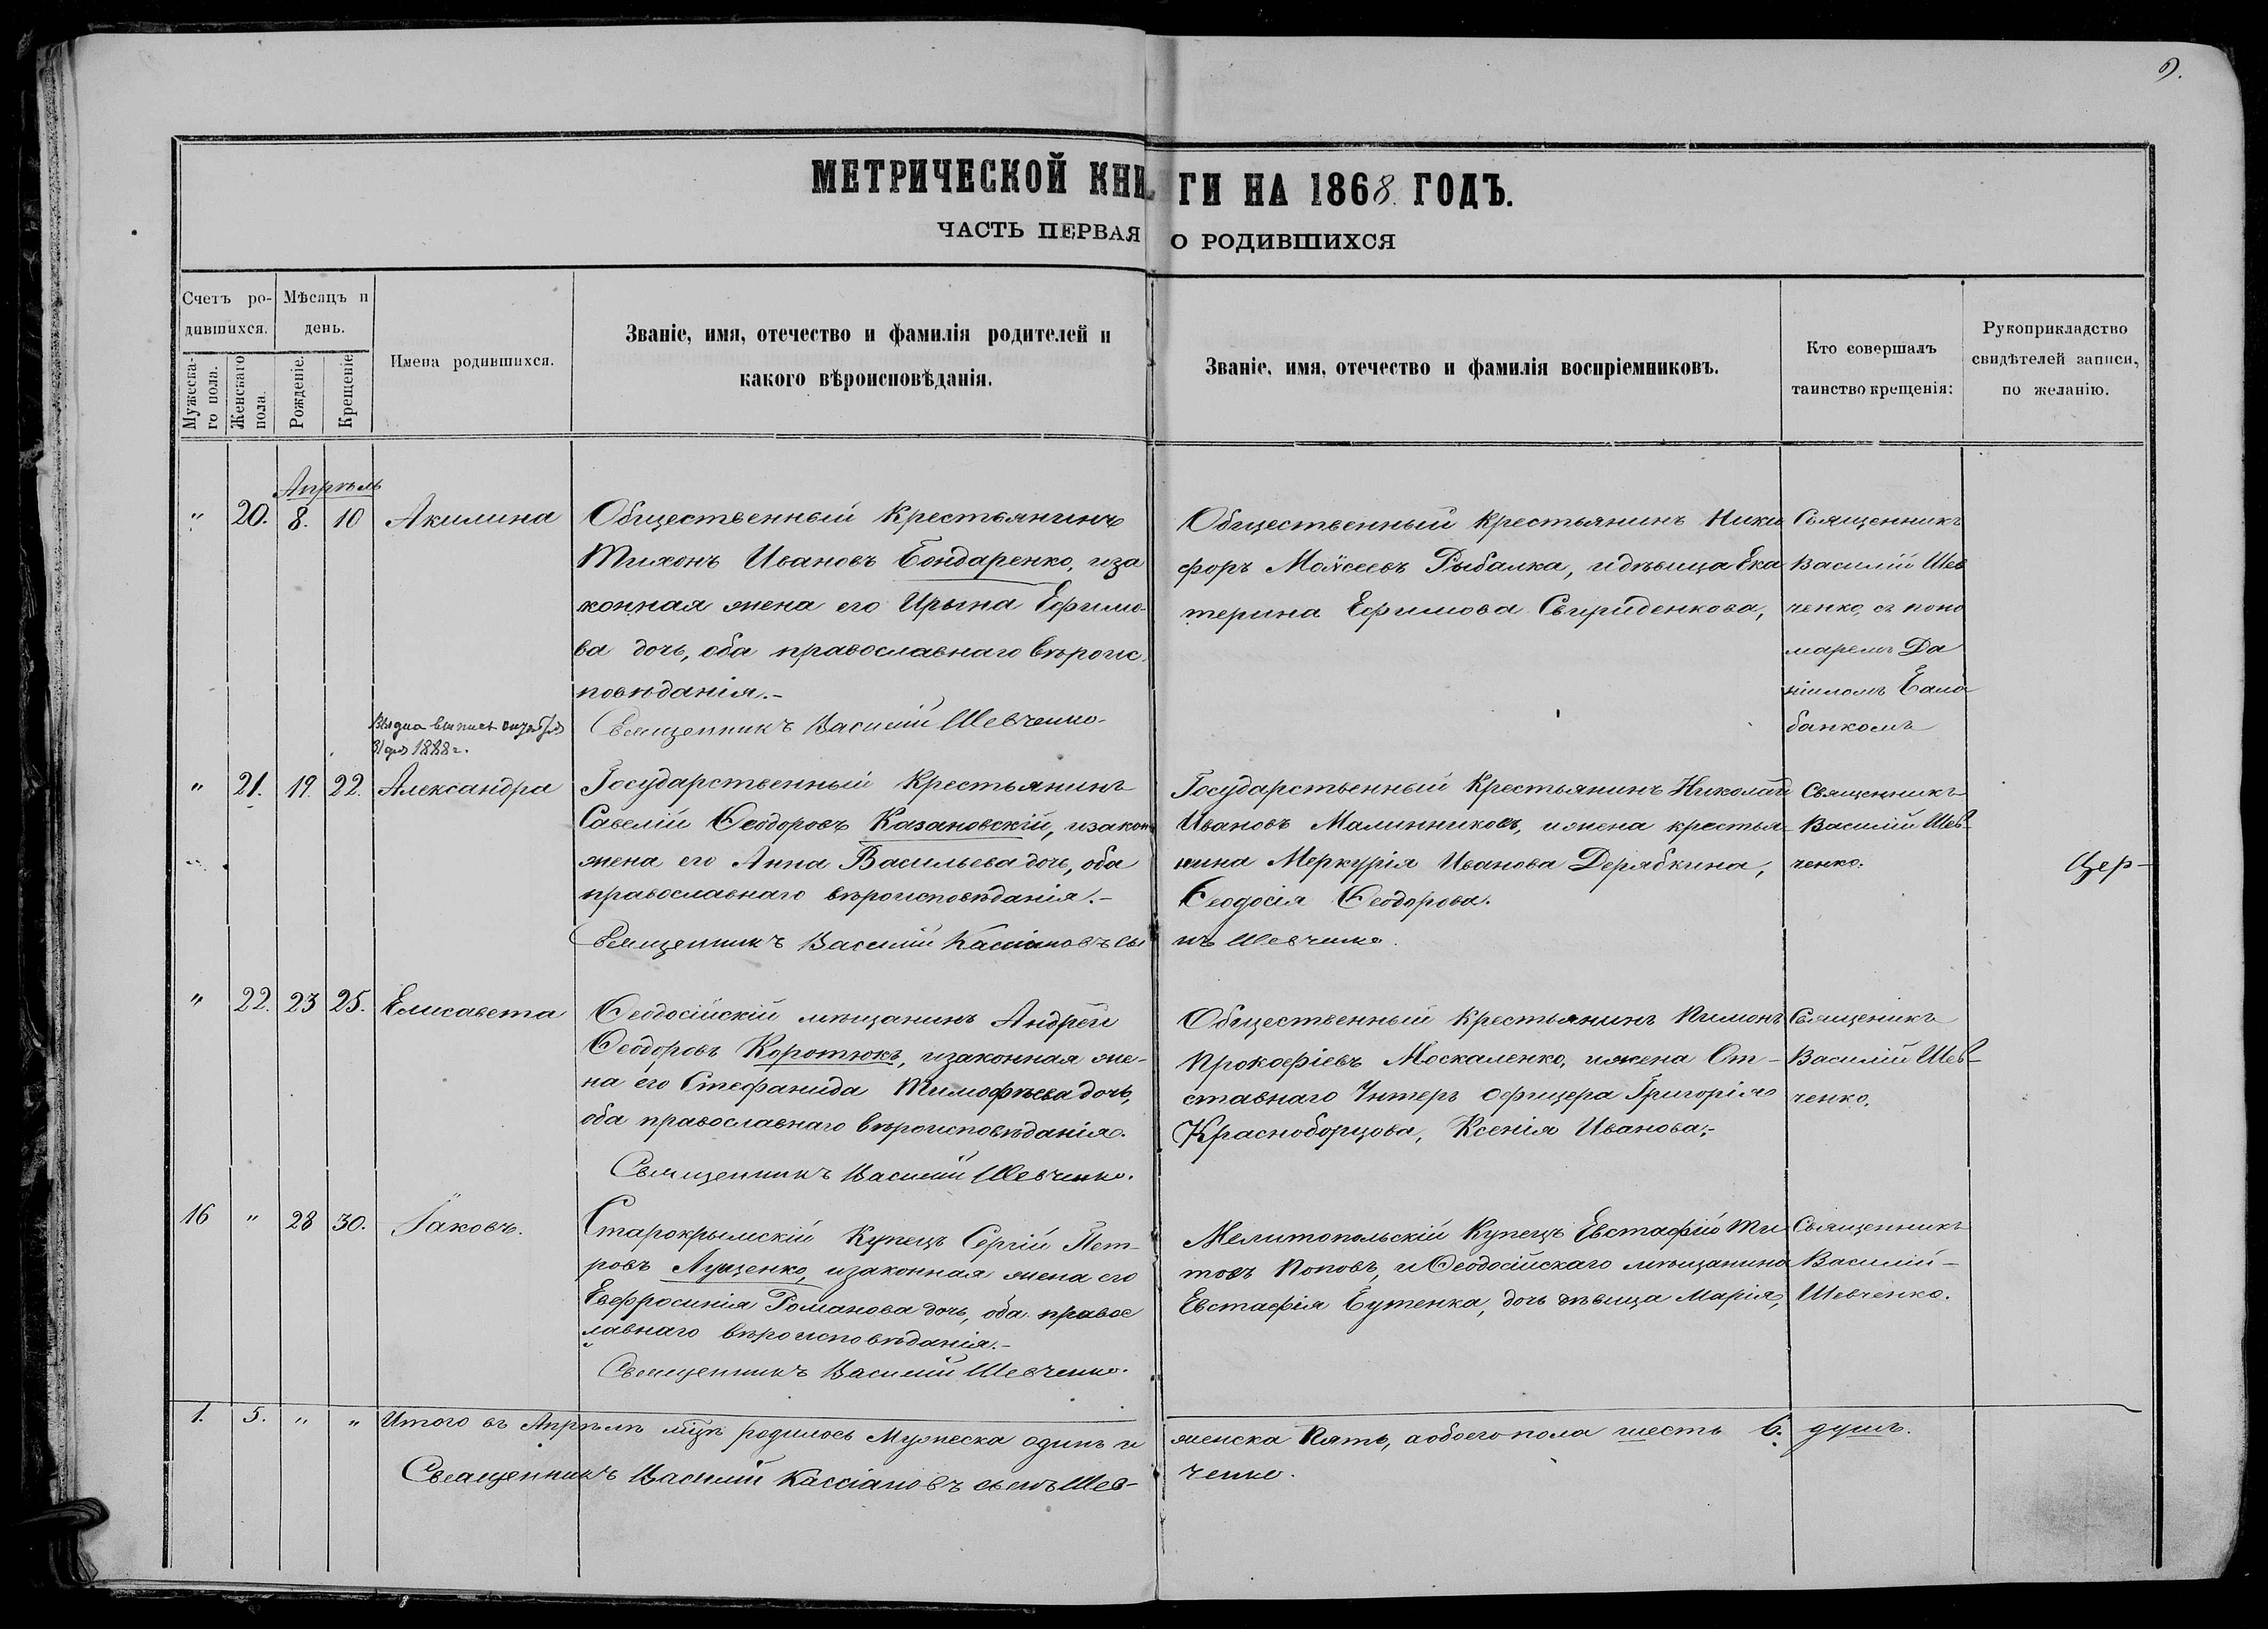 9.
МЕТРИЧЕСКОЙ КНИГИ НА 1868 ГОДЪ.
ЧАСТЬ ПЕРВАЯ О РОДИВШИХСЯ
Счетъ ро-
дившихся.
Мужеска-
го пола.
Женскаго
пола.
Мѣсяцъ и
день.
Рожденіе.
Крещеніе
Имена родившихся.
Званіе, имя, отечество и фамилія родителей и
какого вѣроисповѣданія.
Званіе, имя, отечество и фамилія воспріемниковъ.
Кто совершалъ
таинство крещенія:
Рукоприкладство
свидѣтелей записи,
по желанію.
Апрѣль
" 20. 8. 10 Акилина
Общественный Крестьянинъ
Тихонъ Ивановъ Бондаренко, иза
конная жена его Ирына Ефимо-
ва дочь, оба православнаго вѣроис
повѣданія.-
Священникъ Василій Шевченко.
Общественный Крестьянинъ Ники
форъ Моѵсеевъ Рыбалка, и дѣвица Ека
терина Ефимова Свириденкова,
Священникъ
Василій Шев
ченко, съ поно
маремъ Да
ніиломъ Бала
банкомъ
31 1888 г.
" 21. 19. 22. Александра
Государственный Крестьянинъ
Савелій Ѳеодоровъ Казановскій, изакон
жена его Анна Васильева дочь, оба
православнаго вѣроисповѣданія.-
Священникъ Василій Кассіановъ сы
нъ Шевченко.
Государственный Крестьянинъ Николай
Ивановъ Малинниковъ, и жена крестья-
нина Меркурія Иванова Дерябкина,
Ѳеодосія Ѳеодорова.
Священникъ
Василій Шев-
ченко.
Цер-
" 22. 23 25. Елисавета
Ѳеодосійскій мѣщанинъ Андрей
Ѳеодоровъ Коротюкъ, изаконная же-
на его Стефанида Тимофѣева дочь,
оба православнаго вѣроисповѣданія.
Священникъ Василій Шевченко.
Общественный Крестьянинъ Пимонъ
Прокофіевъ Москаленко, и жена От-
ставнаго Унтеръ офицера Григорія
Красноборцова, Ксенія Иванова;-
Священикъ
Василій Шев-
ченко.
16 " 28 30. Іаковъ.
Старокрымскій Купецъ Сергій Пет-
ровъ Луценко, изаконная жена его
Евфросинія Романова дочь, оба правос
лавнаго вѣроисповѣданія.-
Священникъ Василій Шевченко.
Мелитопольскій Купецъ Евстафій Ти
товъ Поповъ, и Ѳеодосійскаго мѣщанина
Евстафія Бутенка, дочь дѣвица Марія,
Священникъ
Василій-
Шевченко.
1. 5. " " Итого въ Апрѣлѣ мцѣ родилось Мужеска одинъ и женска Пять, а обоего пола шесть 6. душъ.
Священникъ Василій Кассіановъ сынъ Шевченко.